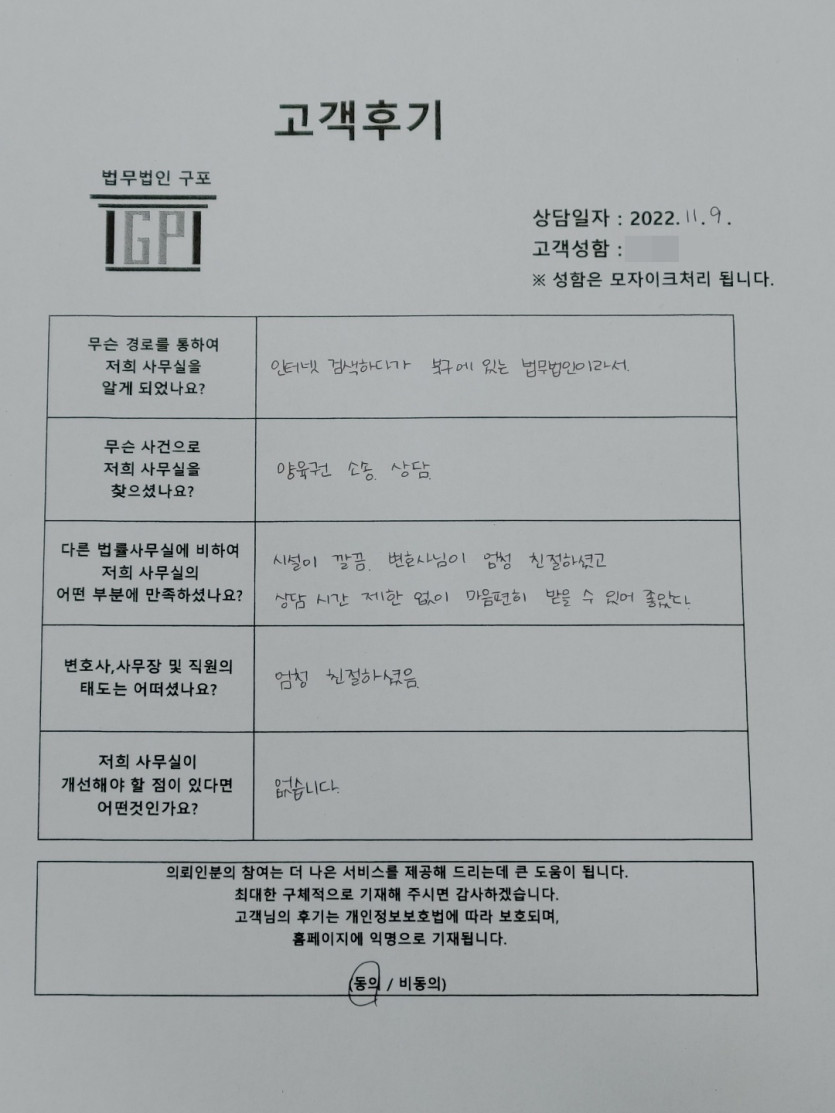 고객후기
법무법인 구포
GP
상담일자 : 2022. 11. 9.
고객성함 :
※ 성함은 모자이크처리 됩니다.
무슨 경로를 통하여
저희 사무실을
알게 되었나요?
인터넷 검색하다가 북구에 있는 법무법인이라서.
무슨 사건으로
저희 사무실을
찾으셨나요?
양육권 소송. 상담.
다른 법률사무실에 비하여
저희 사무실의
어떤 부분에 만족하셨나요?
시설이 깔끔. 변호사님이 엄청 친절하셨고
상담 시간 제한 없이 마음편히 받을 수 있어 좋았다.
변호사,사무장 및 직원의
태도는 어떠셨나요?
엄청 친절하셨음.
저희 사무실이
개선해야 할 점이 있다면
어떤것인가요?
없습니다.
의뢰인분의 참여는 더 나은 서비스를 제공해 드리는데 큰 도움이 됩니다.
최대한 구체적으로 기재해 주시면 감사하겠습니다.
고객님의 후기는 개인정보보호법에 따라 보호되며,
홈페이지에 익명으로 기재됩니다.
(동의 / 비동의)